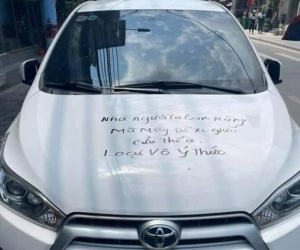 Nhà người ta bán hàng
Mà Mày Đỗ xe giữa
cửa thế à.
Loại Vô Ý Thức